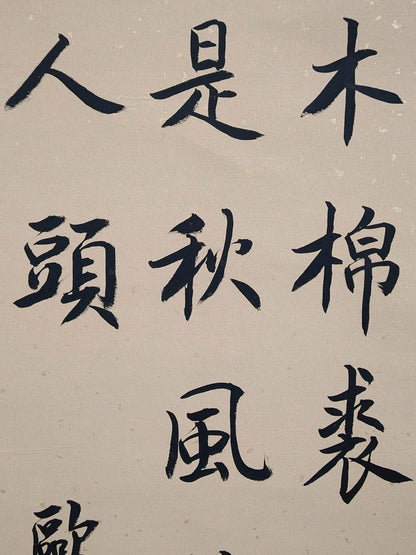 木棉裘
是秋風
人頭
歐